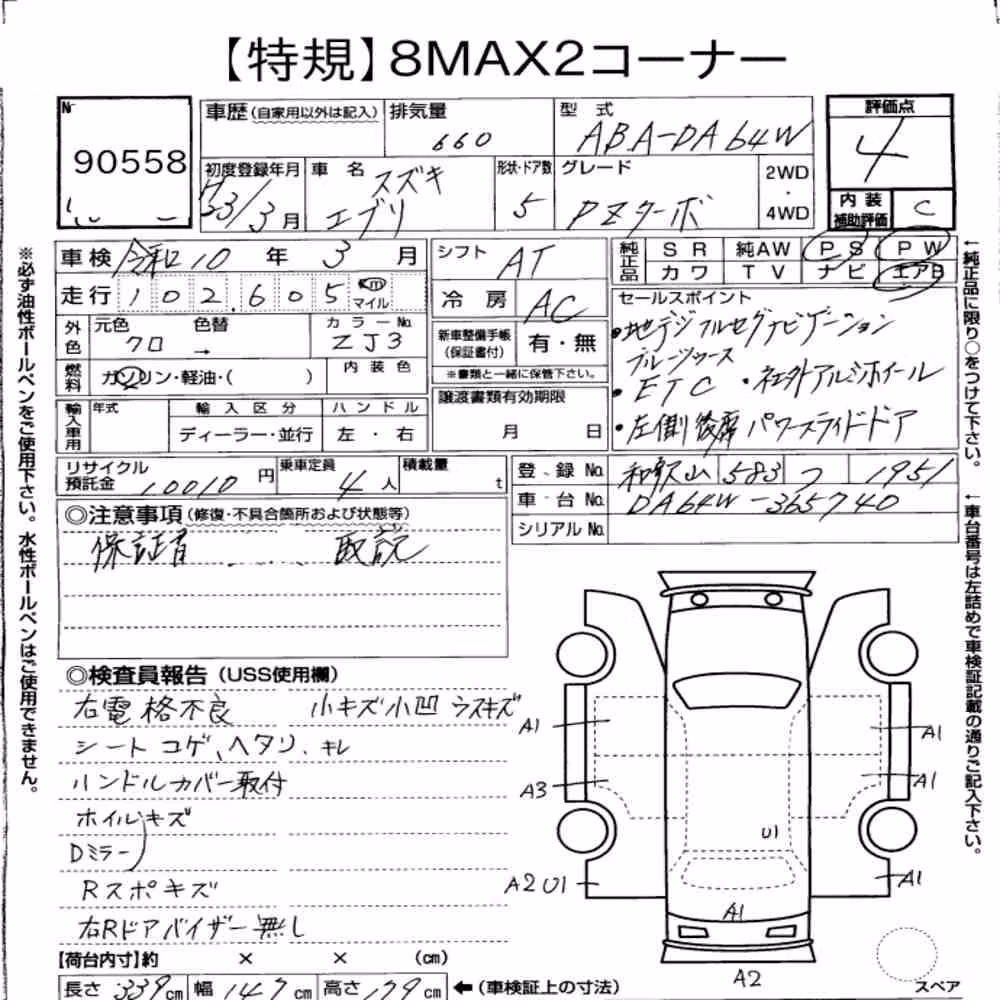 【特規】8MAX2コーナー
№ 90558
車歴(自家用以外は記入) 排気量 660 型式 ABA-DA64W 評価点 4
初度登録年月 H 23/3月 車名 スズキ エブリ 形状・ドア数 5 グレード PZターボ 2WD・4WD 内装補助評価 C
車検 令和10年3月 シフト AT 純正品 SR 純AW PS PW
カワ TV ナビ エアB
走行 102,605 km マイル 冷房 AC
外色 元色 クロ 色替 → カラーNo. ZJ3
新車整備手帳(保証書付) 有・無
※書類と一緒に保管下さい。
燃料 ガソリン・軽油・( ) 内装色
輸入車用 年式 輸入区分 ハンドル
ディーラー・並行 左・右
譲渡書類有効期限
月 日
セールスポイント
・地デジフルセグナビゲーション
ブルーツゥース
・ETC ・社外アルミホイール
・左側後席パワースライドドア
リサイクル預託金 10010円 乗車定員 4人 積載量 t
登録No. 和歌山 583 1951
車台No. DA64W-365740
シリアルNo.
◎注意事項(修復・不具合箇所および状態等)
保証書 取説
◎検査員報告(USS使用欄)
右電格不良 小キズ小凹 ラスキズ
シートコゲ、ヘタリ、キレ
ハンドルカバー取付
ホイルキズ
Dミラー
Rスポキズ
右Rドアバイザー無し
【荷台内寸】約 × × (cm)
長さ 339cm 幅 147cm 高さ 179cm ←(車検証上の寸法)
A1
A1
A3
A1
U1
A2 U1
A1
A1
A2
スペア
※必ず油性ボールペンをご使用下さい。水性ボールペンはご使用できません。
←純正品に限り○をつけて下さい。
←車台番号は左詰めで車検証記載の通りご記入下さい。